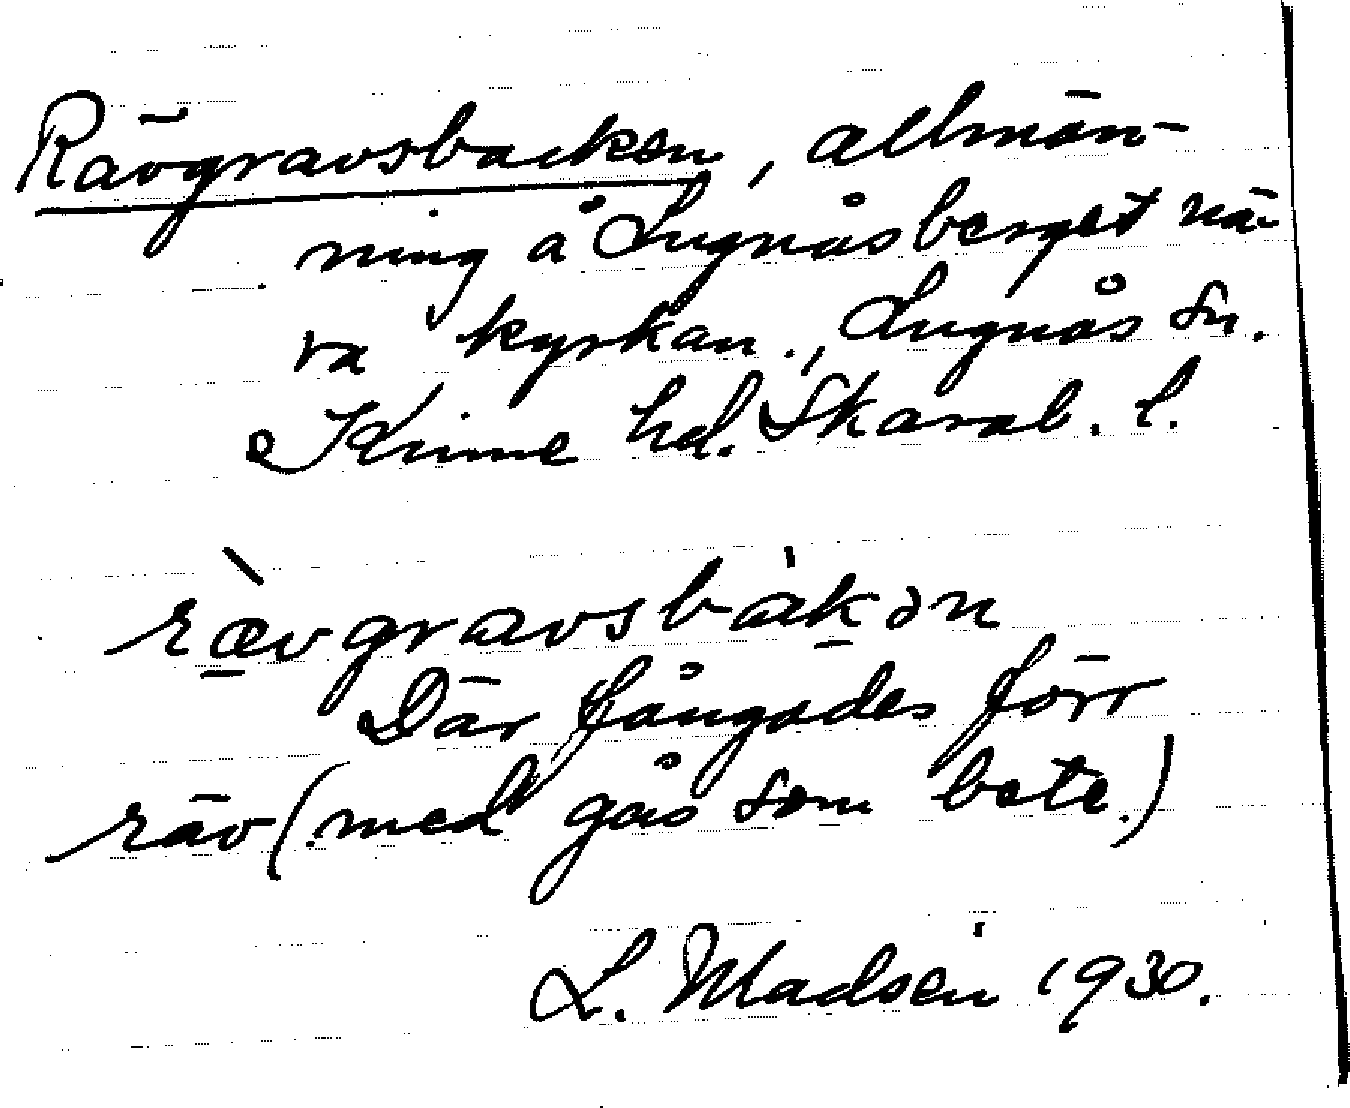 Rävgravsbacken, allmän-
ning å Lugnåsberget nä-
ra kyrkan., Lugnås sn.
Kinne hd. Skarab. l.
rævgravsbakən
Där fångades förr
räv (med gås som bete.)
L. Madsen 1930.